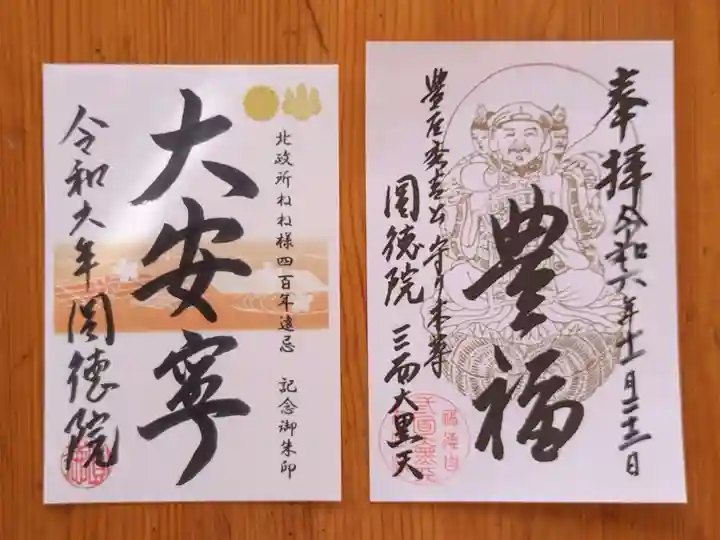 北政所ねね様四百年遠忌 記念御朱印
大安寧
令和六年 圓徳院
奉拝 令和六年十一月二十三日
豊福
豊臣秀吉公 守り本尊
圓徳院 三面大黒天